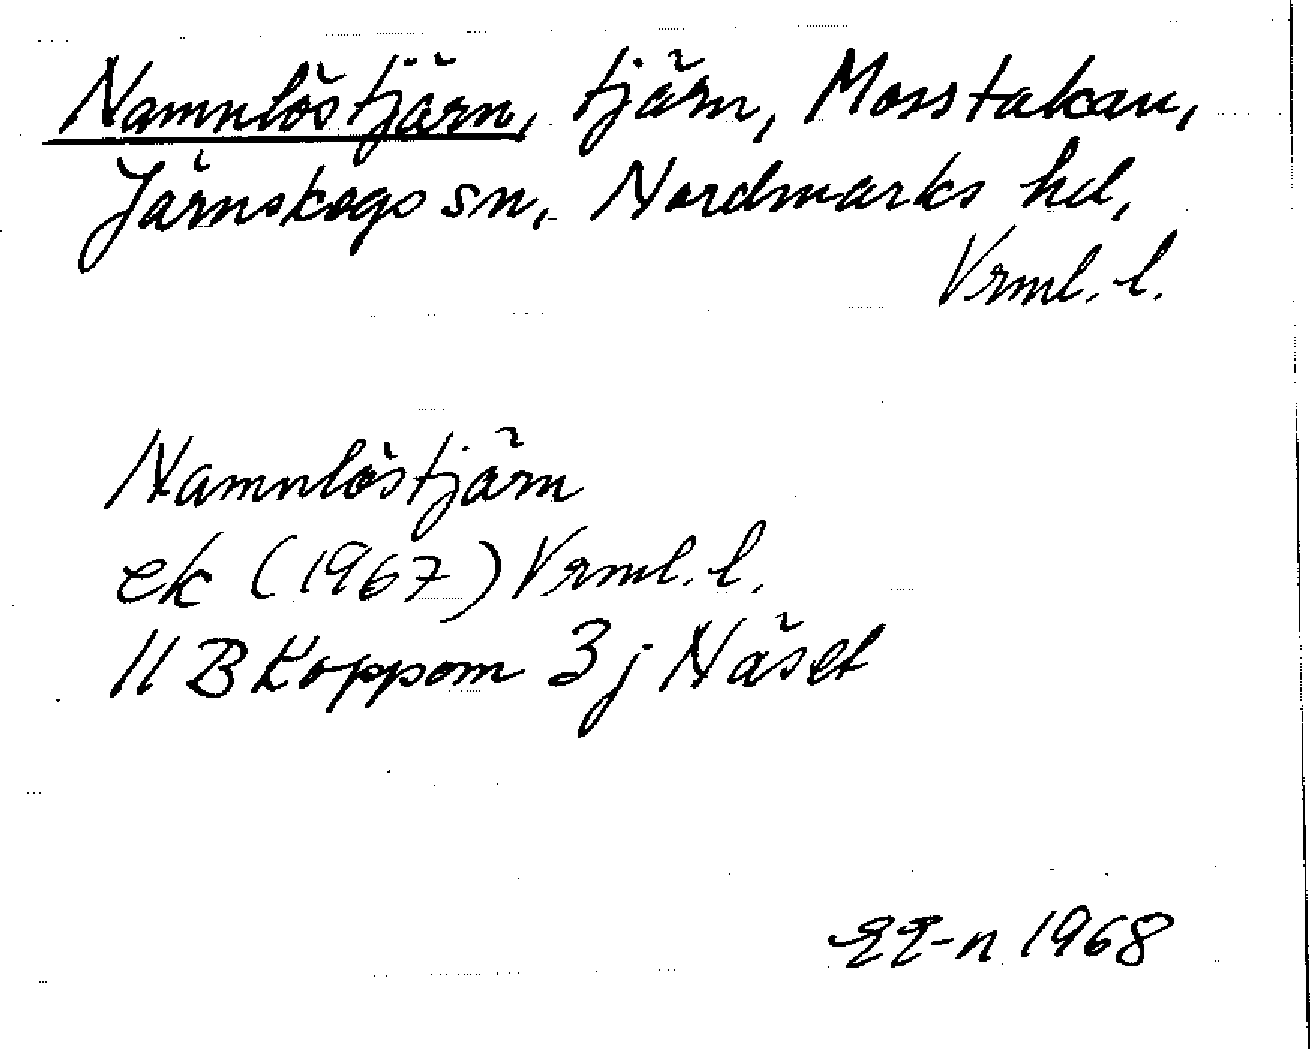 Namnlöstjärn, tjärn, Mosstakan,
Järnskogs sn, Nordmarks hd,
Vrml. l.
Namnlöstjärn
ek (1967) Vrml. l.
11 B Koppom 3 j Näset
EE-n 1968